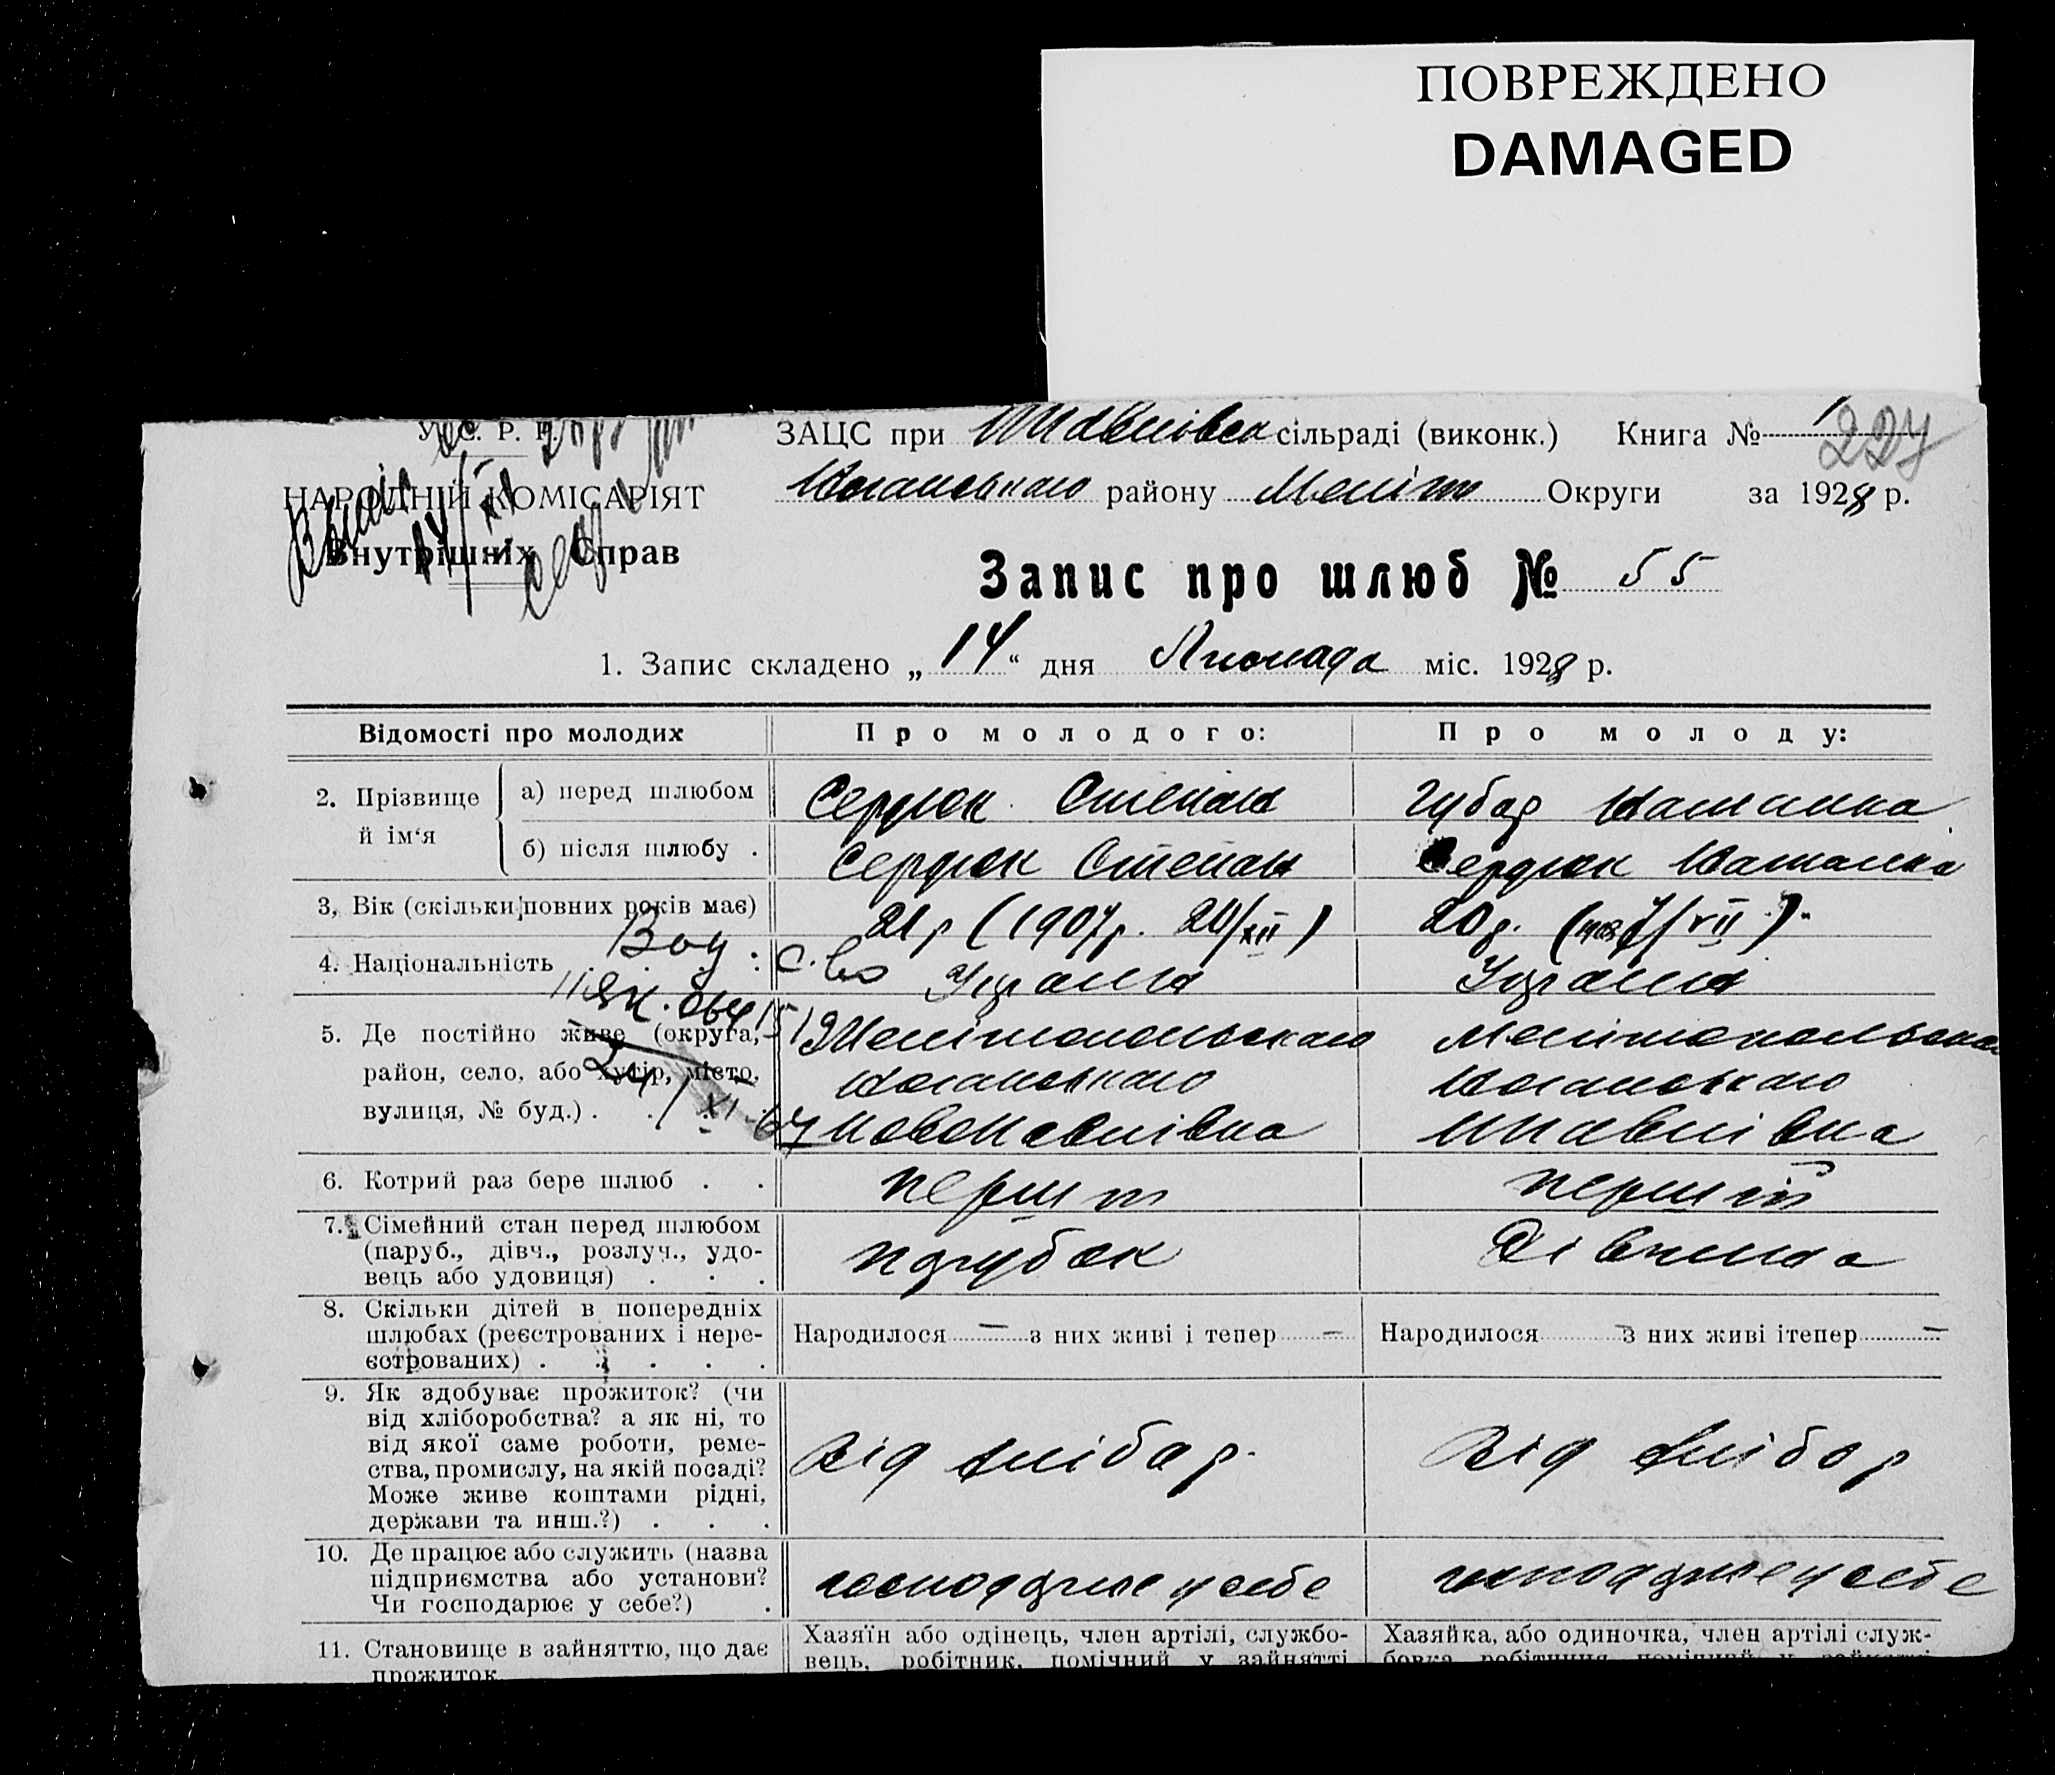 ПОВРЕЖДЕНО
DAMAGED
У. С. Р. Р.
НАРОДНІЙ КОМІСАРІЯТ
Внутрішніх Справ
ЗАЦС при сільраді (виконк.) Книга № 1
227
району Меліт Округи за 1928 р.
Запис про шлюб № 55
1. Запис складено „14“ дня Листопада міс. 1928 р.
Відомості про молодих
Про молодого:
Про молоду:
2. Прізвище й ім‘я
а) перед шлюбом
Сердюк Степан
Губар Наталка
б) після шлюбу .
Сердюк Степан
Сердюк Наталка
3, Вік (скільки повних років має)
21 р (1907 р. 20/XII)
20 р. (1908 7/VII).
4. Національність
Україн
Україн
5. Де постійно живе (округа,
район, село, або хутір, місто,
вулиця, № буд.) . . . .
Мелітопольского
Мелітопольского
24/XI-67
6. Котрий раз бере шлюб . .
перший
перший
7. Сімейний стан перед шлюбом
(паруб., дівч., розлуч., удо-
вець або удовиця) . . .
парубок
Дівчина
8. Скільки дітей в попередніх
шлюбах (реєстрованих і нере-
єстрованих) . . . . .
Народилося — з них живі і тепер —
Народилося — з них живі ітепер —
9. Як здобуває прожиток? (чи
від хліборобства? а як ні, то
від якої саме роботи, реме-
ства, промислу, на якій посаді?
Може живе коштами рідні,
держави та инш.?) . . .
Від хлібор.
Від хлібор
10. Де працює або служить (назва
підприємства або установи?
Чи господарює у себе?) .
господарює у себе
господарює у себе
11. Становище в зайняттю, що дає
прожиток
Хазяїн або одінець, член артілі, службо-
вець, робітник, помічний у зайнятті
Хазяйка, або одиночка, член артілі служ-
бовка робітниця помічний у зайнятті